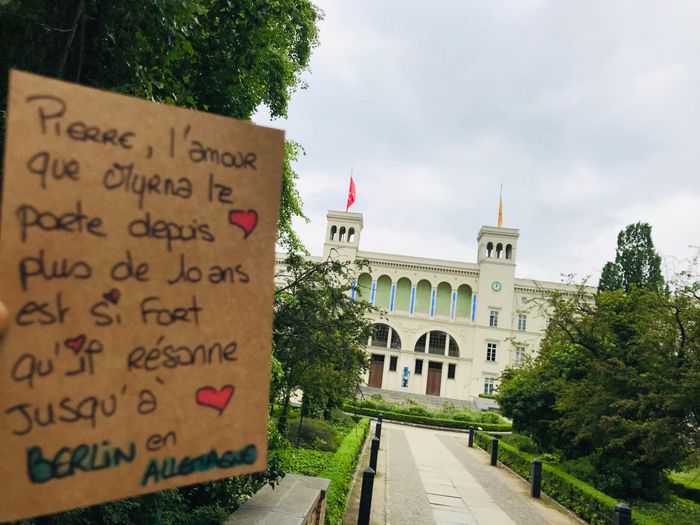 Pierre, l'amour
que Myrna te
porte depuis
plus de 10 ans
est si fort
qu'il résonne
jusqu'à
BERLIN en
ALLEMAGNE